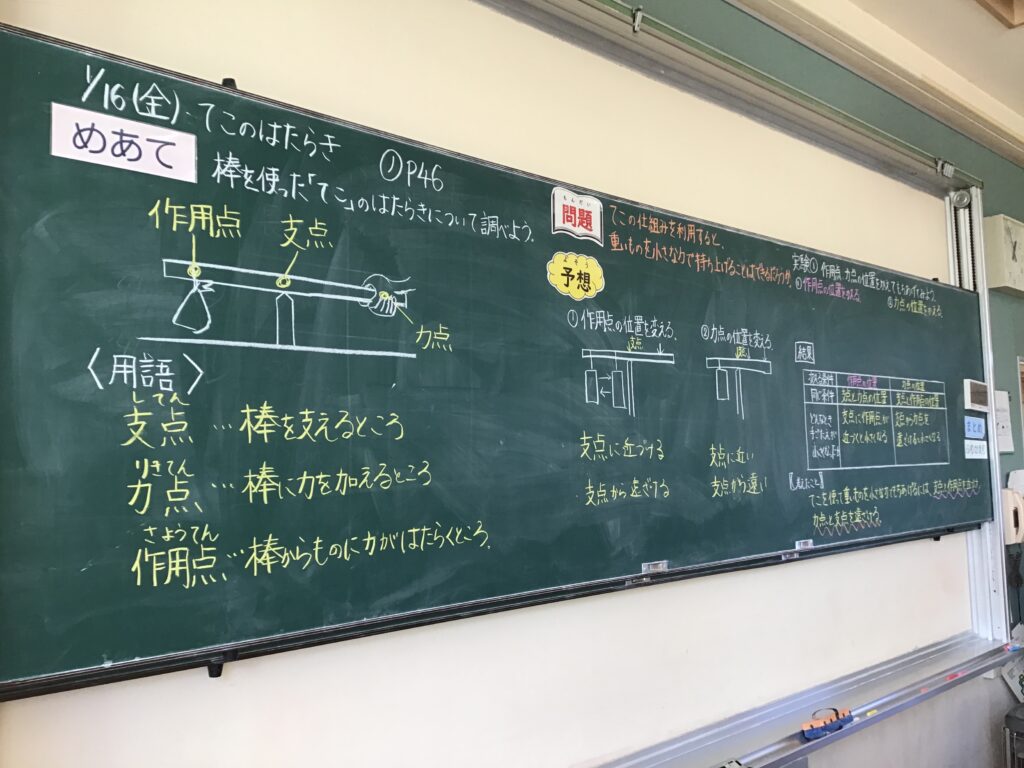 1/16(金)・てこのはたらき
めあて
①P46
棒を使った「てこ」のはたらきについて調べよう。
作用点
支点
力点
〈用語〉
してん
支点…棒を支えるところ
りきてん
力点…棒に力を加えるところ
さようてん
作用点…棒からものに力がはたらくところ。
もんだい
問題
てこの仕組みを利用すると、
重いものを小さな力で持ち上げることはできるだろうか
予想
①作用点の位置を変える。
支点
支点に近づける
支点から遠ざける
②力点の位置を変える。
支点
支点に近い
支点から遠い
実験① 作用点、力点の位置を変えてもちあげてみよう。
作用点の位置を変える。
力点の位置を変える。
結果
作用点の位置
力点の位置
支点と力点の位置
支点と作用点の位置
手ごたえが
支点に作用点が
近づくと小さくなる
支点から力点を
まとめ
てこを使って重いものを小さな力でもちあげるには、支点と作用点を近づけ、
力点と支点を遠ざける。